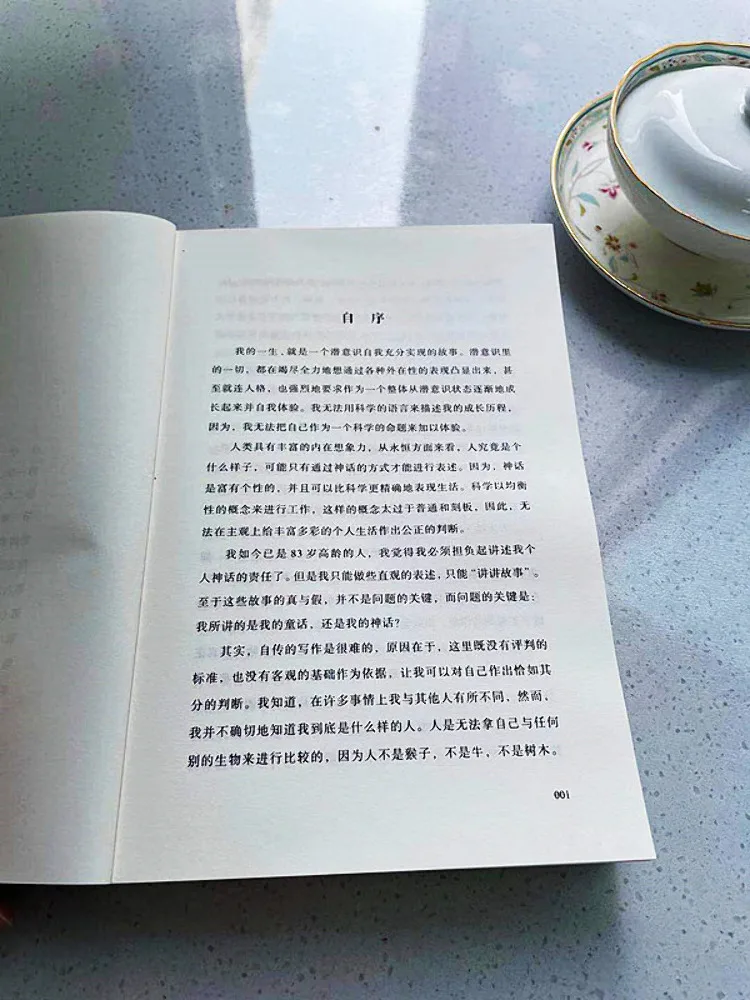 自 序
我的一生，就是一个潜意识自我充分实现的故事。潜意识里
的一切，都在竭尽全力地想通过各种外在性的表现凸显出来，甚
至就连人格，也强烈地要求作为一个整体从潜意识状态逐渐地成
长起来并自我体验。我无法用科学的语言来描述我的成长历程，
因为，我无法把自己作为一个科学的命题来加以体验。
人类具有丰富的内在想象力，从永恒方面来看，人究竟是个
什么样子，可能只有通过神话的方式才能进行表述。因为，神话
是富有个性的，并且可以比科学更精确地表现生活。科学以均衡
性的概念来进行工作，这样的概念太过于普通和刻板，因此，无
法在主观上给丰富多彩的个人生活作出公正的判断。
我如今已是 83 岁高龄的人，我觉得我必须担负起讲述我个
人神话的责任了。但是我只能做些直观的表述，只能“讲讲故事”。
至于这些故事的真与假，并不是问题的关键，而问题的关键是：
我所讲的是我的童话，还是我的神话？
其实，自传的写作是很难的，原因在于，这里既没有评判的
标准，也没有客观的基础作为依据，让我可以对自己作出恰如其
分的判断。我知道，在许多事情上我与其他人有所不同、然而、
我并不确切地知道我到底是什么样的人。人是无法拿自己与任何
别的生物来进行比较的，因为人不是猴子，不是牛，不是树木。
001